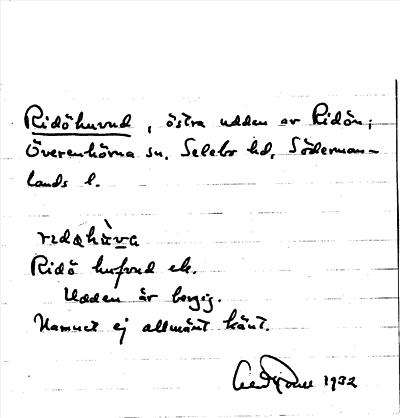 Ridöhuvud, östra udden av Ridön;
Överenhörna sn, Selebo hd, Söderman-
lands l.
Ridö hufvud ek.
Udden är bergig.
Namnet ej allmänt känt.
1932